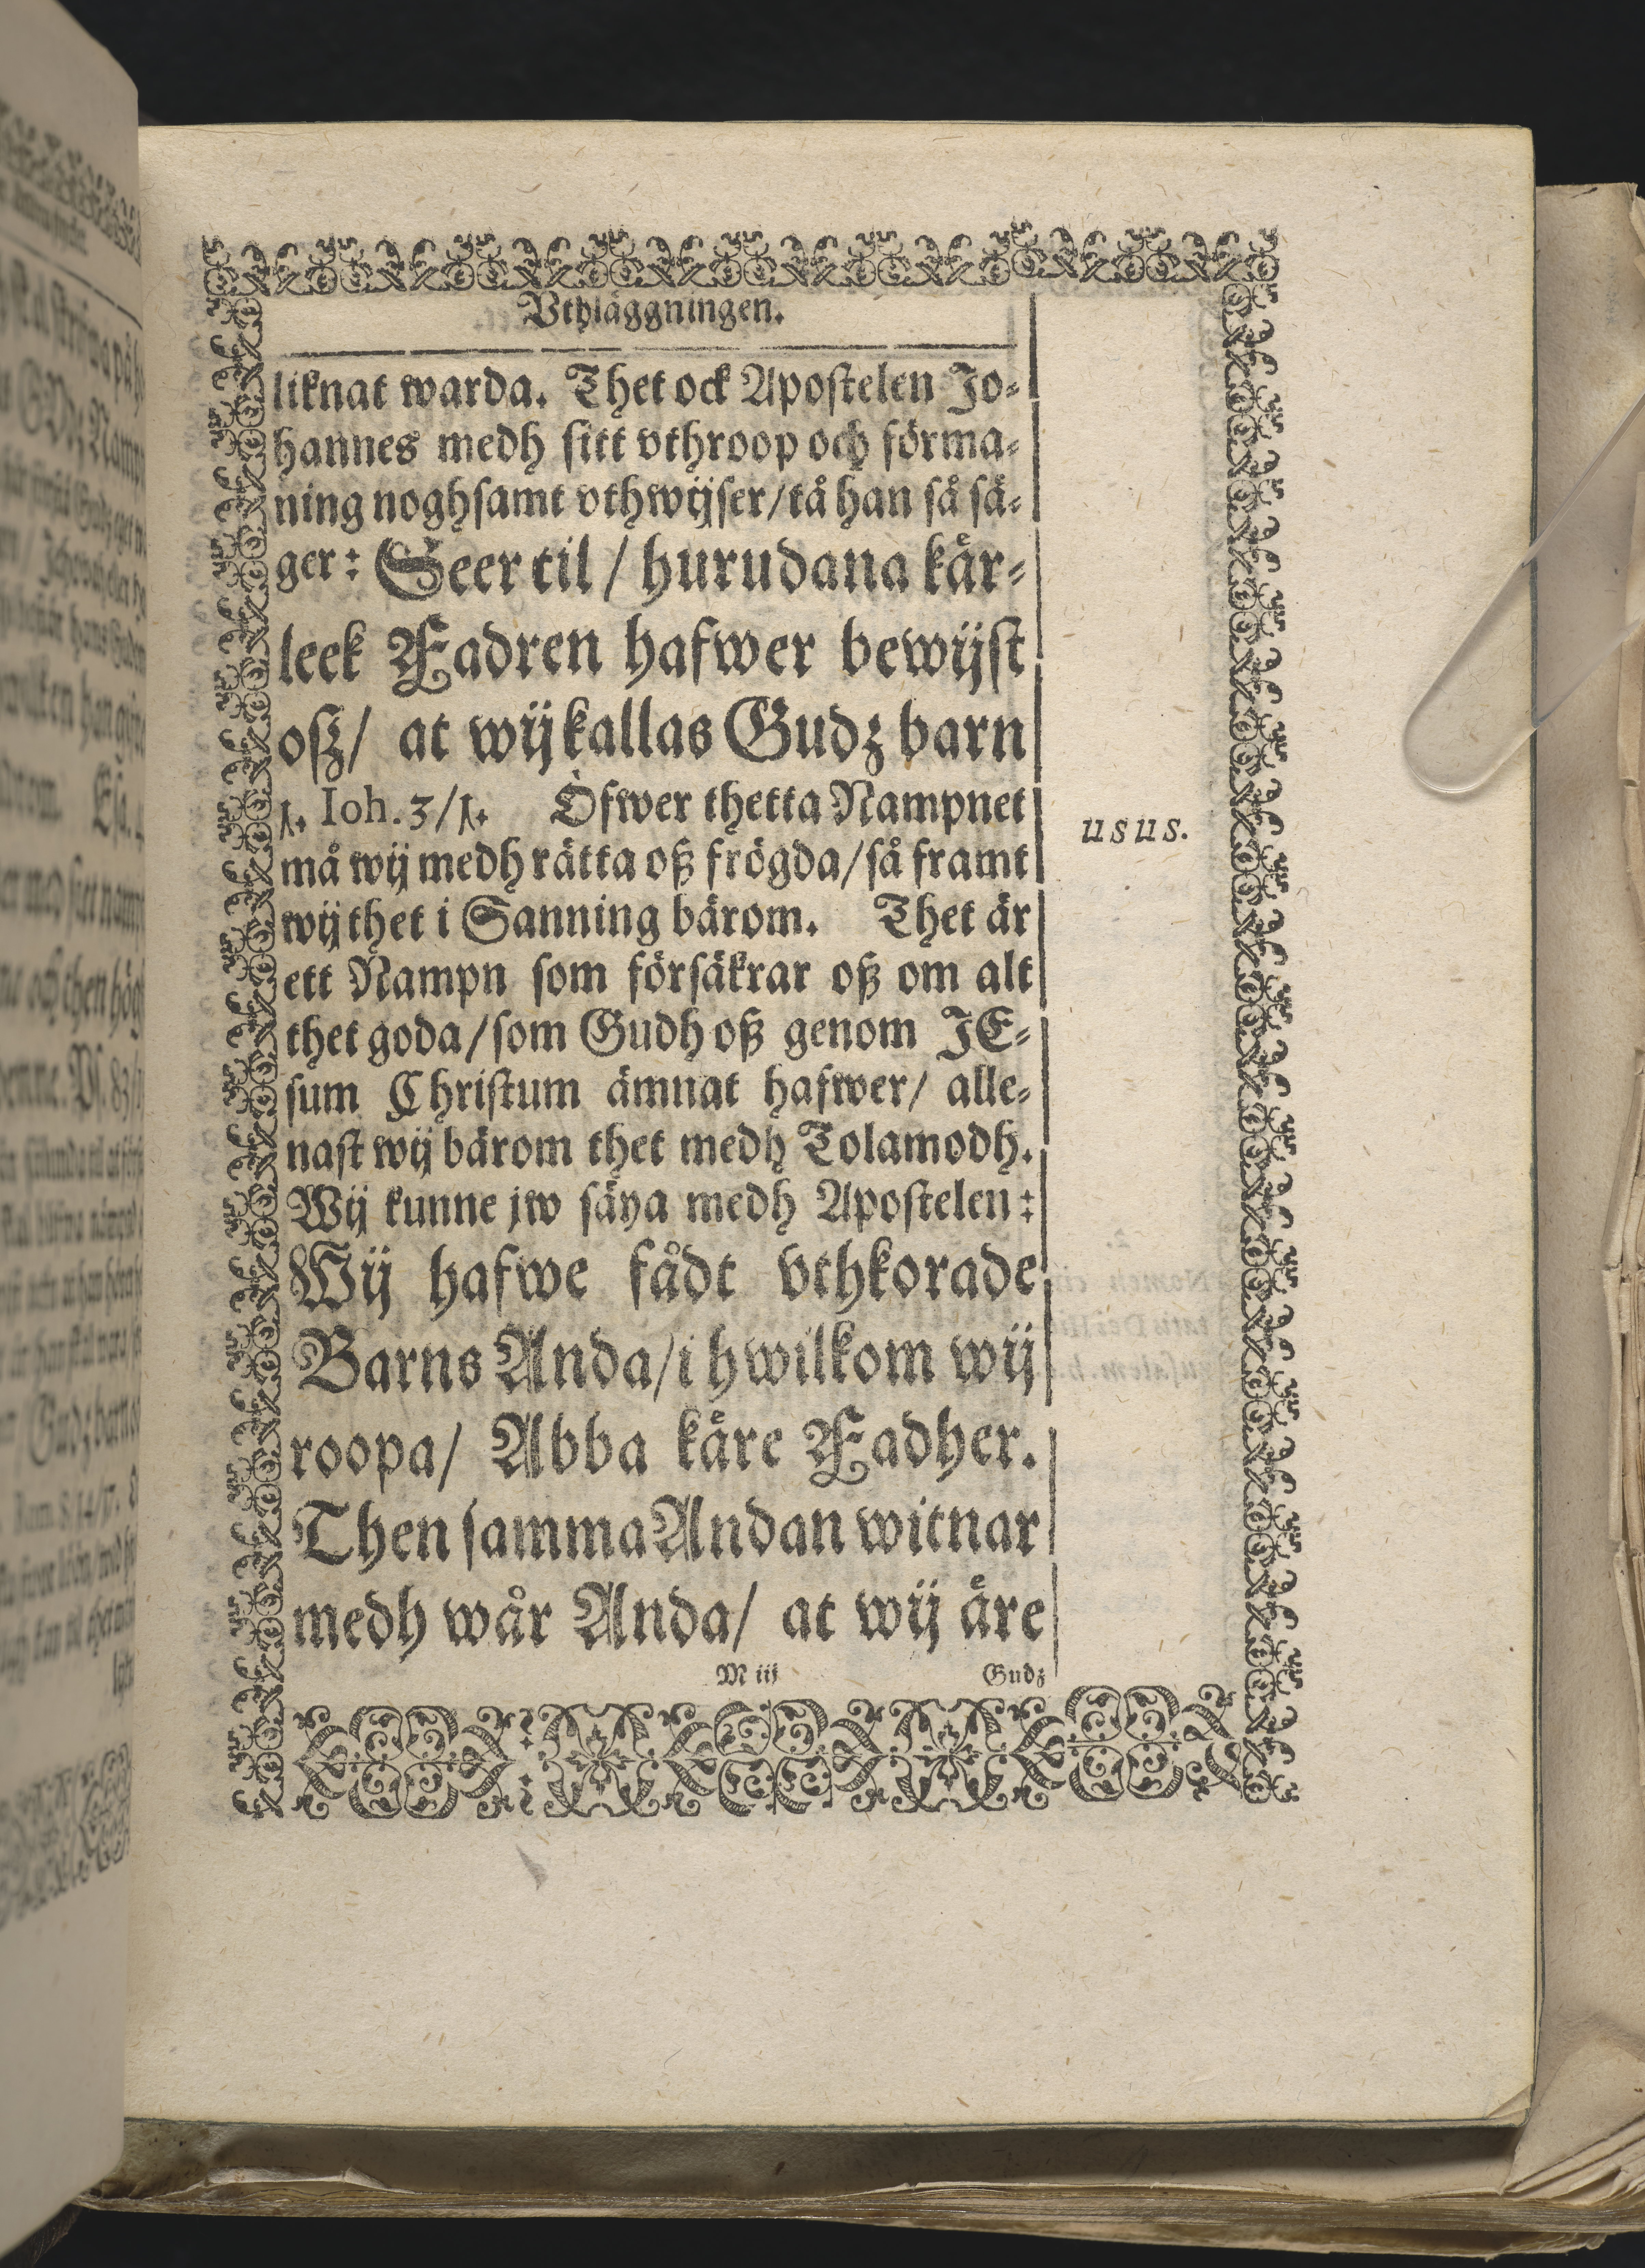 Vthläggningen.
liknat warda. Thet ock Apostelen Jo-
hannes medh sitt vthroop och förma-
ning noghsamt vthwijser/ tå han så sä-
ger: Seer til / hurudana kär-
leek Fadren hafwer bewijst
oß/ at wij kallas Gudz barn
1. Ioh. 3/1. Öfwer thetta Nampnet
usus.
må wij medh rätta oß frögda/ så framt
wij thet i Sanning bärom. Thet är
ett Nampn som försäkrar oß om alt
thet goda/ som Gudh oß genom JE-
sum Christum ämnat hafwer/ alle-
nast wij bärom thet medh Tolamodh.
Wij kunne jw säya medh Apostelen:
Wij hafwe fådt vthkorade
Barns Anda/ i hwilkom wij
roopa/ Abba käre Fadher.
Then samma Andan witnar
medh wår Anda/ at wij äre
M iij Gudz